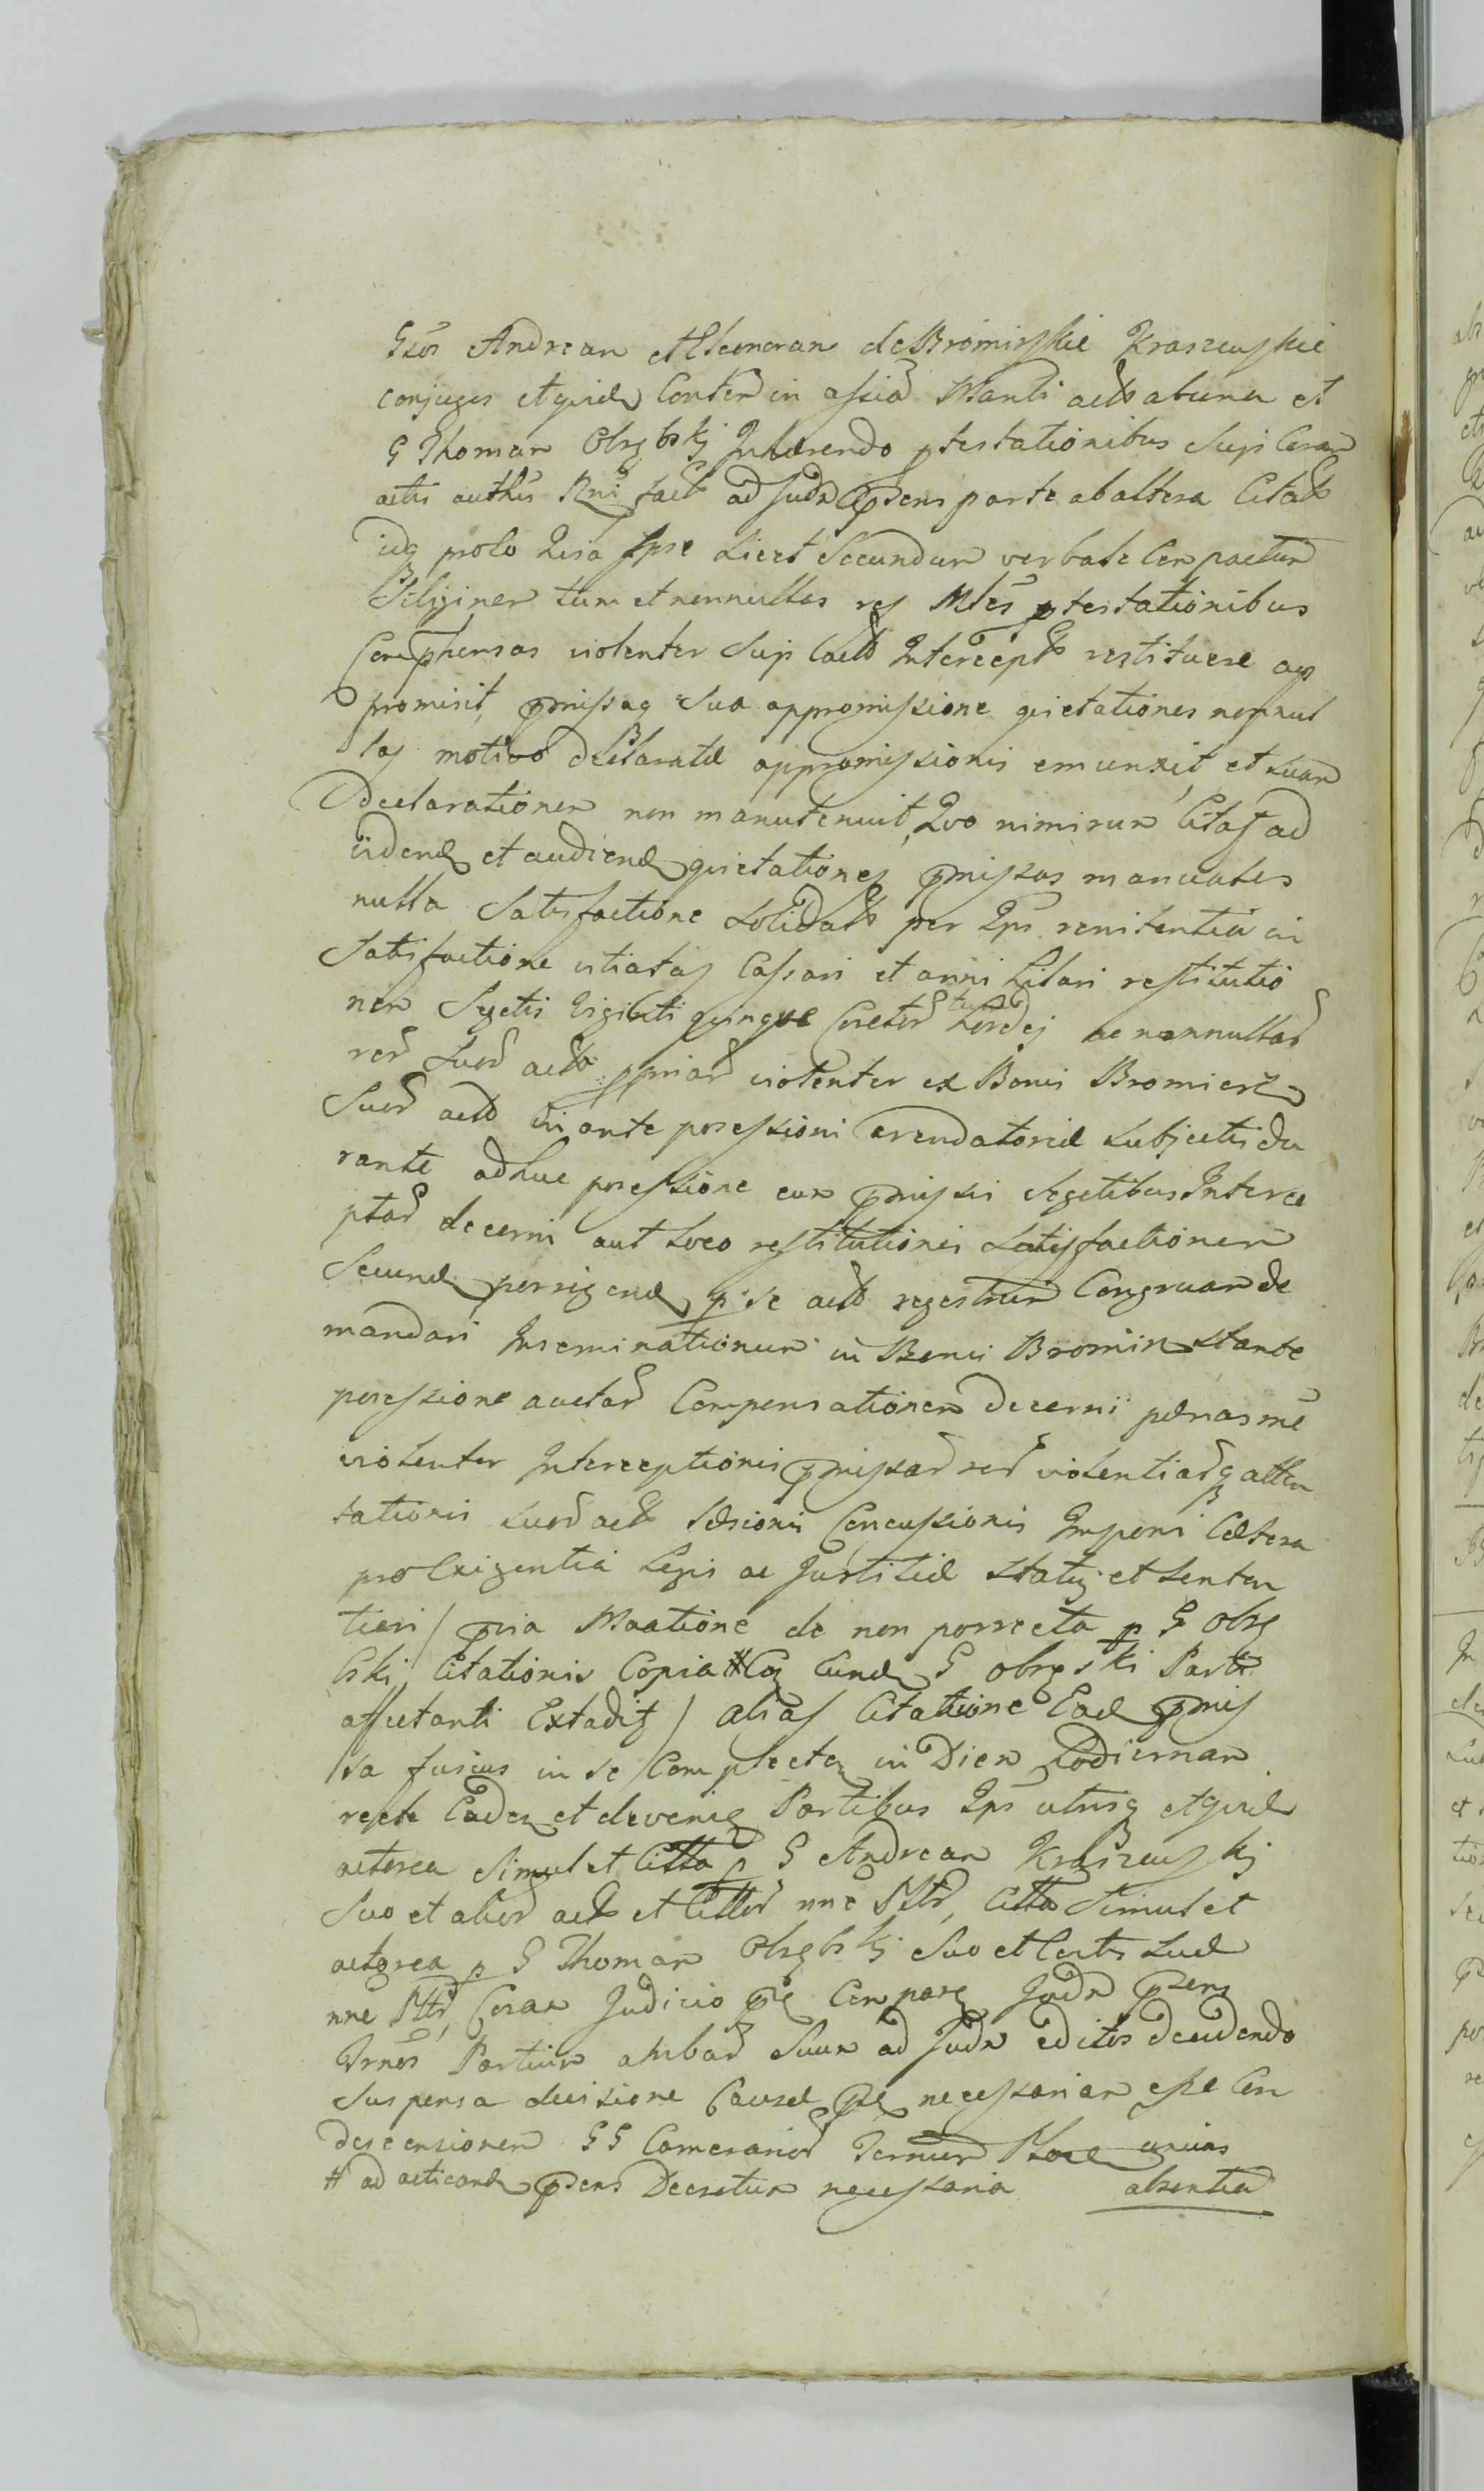 Gsos Andream et Eleonoram de Bromirskie Kraszewskie
conjuges et quide Conten in assia Mariti actb ab una et
G Thomam Obrębskj Inhærendo ptestationibus Sup Coram
actis authis fact ad Judm psens parte ab altera Citat
idq prolo Quia Ipse Licet Secundum verbale Compactum
Siliginem tum et nonnullas res ptestationibus
Comphensas violenter Sup actb Intercept restituere ap
promisit, pmissaq sua appromissione quietationes nonnul
las motivo declaratæ appromissionis emunxit, et suam
Declarationem non manutenuit, Quo nimirum Citat ad
vidend et audiend quietationes pmissas manuales
nulla Satisfactione solidat per Ips renitentia in
Satisfactione vitiatas Cassari et annihilari restitutio
nem Segetis Viginti quinque Coretor tum Hordej ac nonnullar
rer Suor actb ppriar violenter ex Bonis Bromierz
Suor actb in ante possessioni arendatoriæ subjectis du
rante adhuc possessione cum pmissis segetibus Interce
ptar decerni aut Loco restitutionis satisfactionem
Secund porrigend p se actb regestrum Congruam de
mandari Inseminationum in Bonis Bromierz stante
possessione auctar Compensationem decerni pænas
violenter Interceptionis pmissar rer violentiarq atten
tationis suor actb Læsionis Concussionis Imponi Cætera
pro Exigentia Legis ac Justitiæ statuj et senten
tiari / pvia de non porrecta p G Obrę
bski Citationis Copia # Coq Eund G Obrębski Parti
affectanti Extadit / alias Citatione Ead pmis
sa fusius in se Complectem in Diem hodiernam
recte Caden et devenien Partibus Ips utrisq et quid
actorea simul et Citta p G Andream Kraszewskj
Suo et alior actb et Cittor nne Pttr, Citta Simul et
actorea p G Thomam Obrębskj Suo et Certis sue
nne Pttr, Coram Judicio pnti Comparen Judm psens
Trnos Partium ambar Suum ad Judm editos decidendo
suspensa decisione Causæ pntis necessariam esse Con
descensionem GG Camerarior Terrium Ploc unius
# ad acticand psens Decretum necessaria absentia